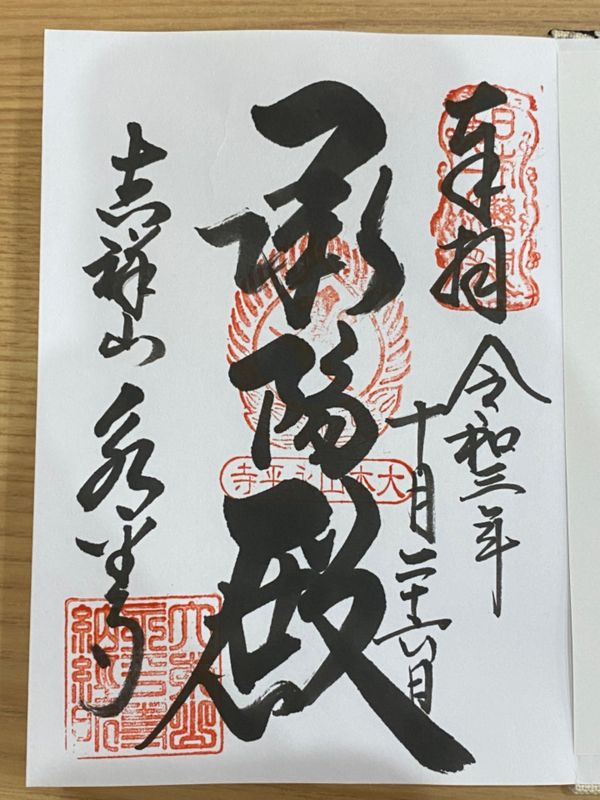 奉拝
令和三年
十月二十六日
承陽殿
大本山永平寺
吉祥山永平寺